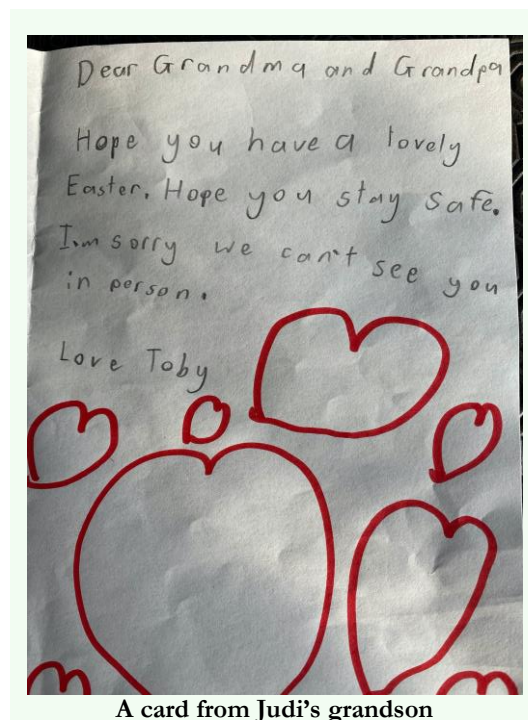 Dear Grandma and Grandpa
Hope you have a lovely
Easter. Hope you stay safe.
I'm sorry we can't see you
in person.
Love Toby
A card from Judi's grandson